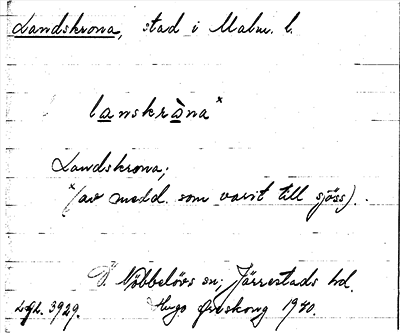 Landskrona, stad i Malm. l.
lanskràna x
Landskrona;
x (av medd. som varit till sjöss).
Ö. Nöbbelövs sn; Järrestads hd.
LAL. 3929. Hugo Areskoug 1940.